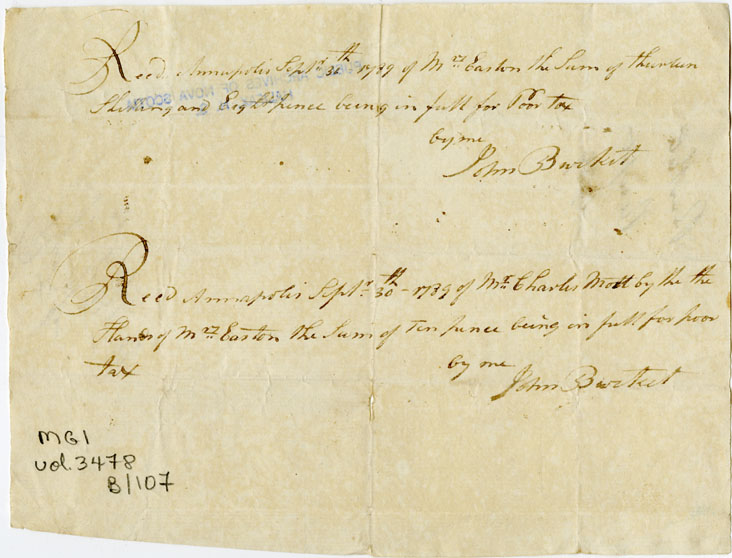 Recd Annapolis Septr 30th 1789 of Mrs Easton the Sum of thirteen
Shilling and Eight pence being in full for Poor tax
by me
John Burket
Recd Annapolis Septr 30th - 1789 of Mr Charles Mott by the the
Hands of Mrs Easton the Sum of Ten pence being in full for poor
tax
by me
John Burket
MG1
vol. 3478
B/107